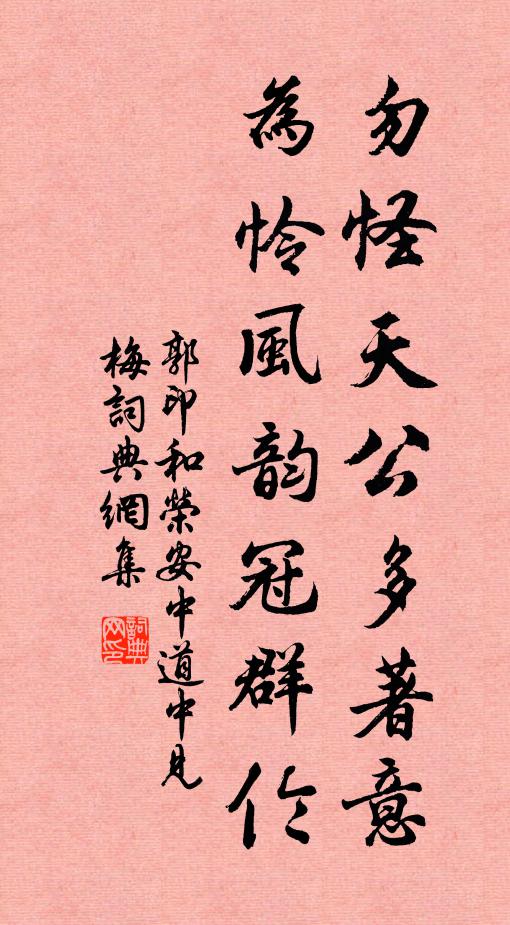 勿怪天公多著意
為怜風韵冠群伦
郭印和榮安中道中見
梅詞典網集
詞典
网印